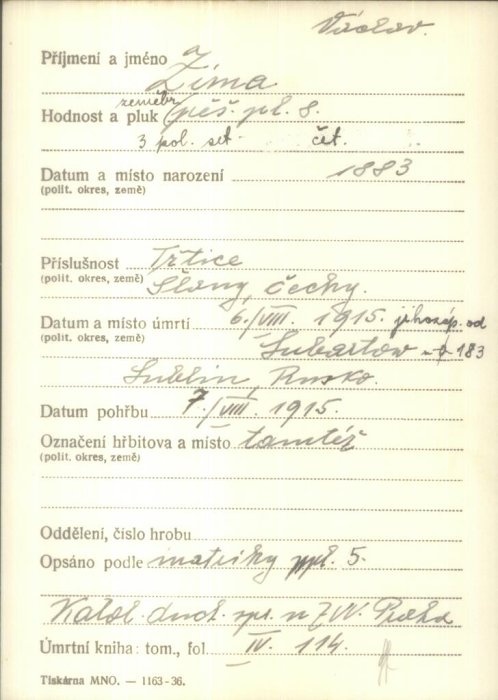 Václav.
Příjmení a jméno Zíma
Hodnost a pluk zeměbr. pěš. pl. 8.
3 pol. set. čet.
Datum a místo narození 1883
(polit. okres, země)
Příslušnost Třtice
(polit. okres, země) Slaný, Čechy.
Datum a místo úmrtí 6./VIII. 1915. jihozáp. od
(polit. okres, země) Lubartow 183
Lublin, Rusko.
Datum pohřbu 7./VIII. 1915.
Označení hřbitova a místo tamtéž
(polit. okres, země)
Oddělení, číslo hrobu
Opsáno podle matriky ppl. 5.
Katol. duch. spr. u ZVV. Praha
Úmrtní kniha: tom., fol. IV. 114.
Tiskárna MNO. — 1163-36.